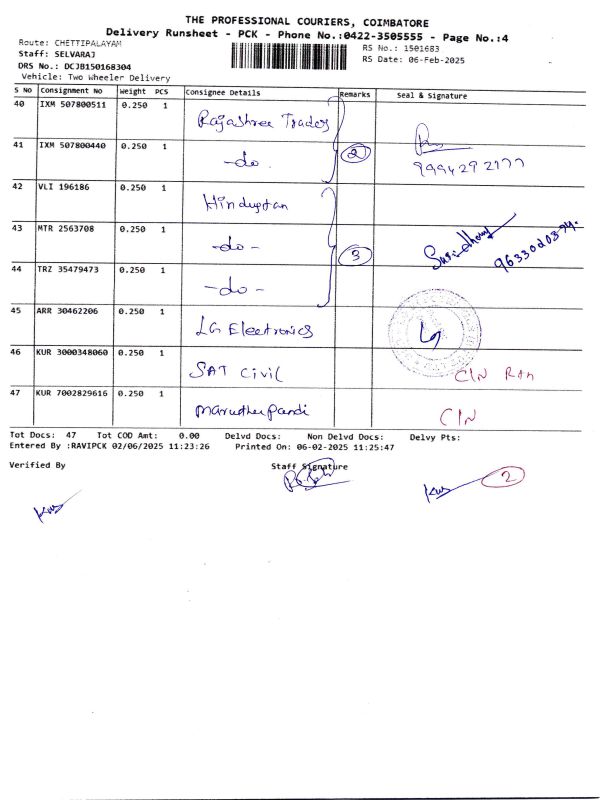 THE PROFESSIONAL COURIERS, COIMBATORE
Delivery Runsheet - PCK - Phone No.:0422-3505555 - Page No.:4
Route: CHETTIPALAYAM
RS No.: 1501683
Staff: SELVARAJ
RS Date: 06-Feb-2025
DRS No.: DCJB150168304
Vehicle: Two Wheeler Delivery
S No Consignment No Weight PCS Consignee Details Remarks Seal & Signature
40 IXM 507800511 0.250 1 Rajashree Trades
41 IXM 507800440 0.250 1 -do. 2 9994292177
42 VLI 196186 0.250 1 Hindustan
43 MTR 2563708 0.250 1 -do- 3
44 TRZ 35479473 0.250 1 -do-
45 ARR 30462206 0.250 1 LG Electronics
46 KUR 3000348060 0.250 1 SAT Civil C/N
47 KUR 7002829616 0.250 1 Maruthu Pandi C/N
Tot Docs: 47 Tot COD Amt: 0.00 Delvd Docs: Non Delvd Docs: Delvy Pts:
Entered By :RAVIPCK 02/06/2025 11:23:26 Printed On: 06-02-2025 11:25:47
Verified By Staff Signature
2